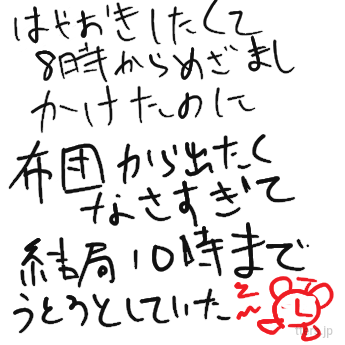 はやおきしたくて
8時からめざまし
かけたのに
布団から出たく
なさすぎて
結局10時まで
うとうとしていた